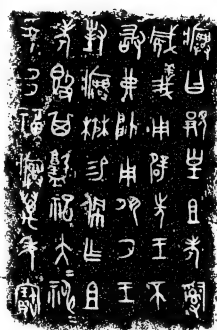 𤼈曰覭皇且考𤔲
威義用辟先王不
敢弗帥用夙夕王
對𤼈楙易佩乍且
考簋其祀大神
妥多福𤼈萬年寶